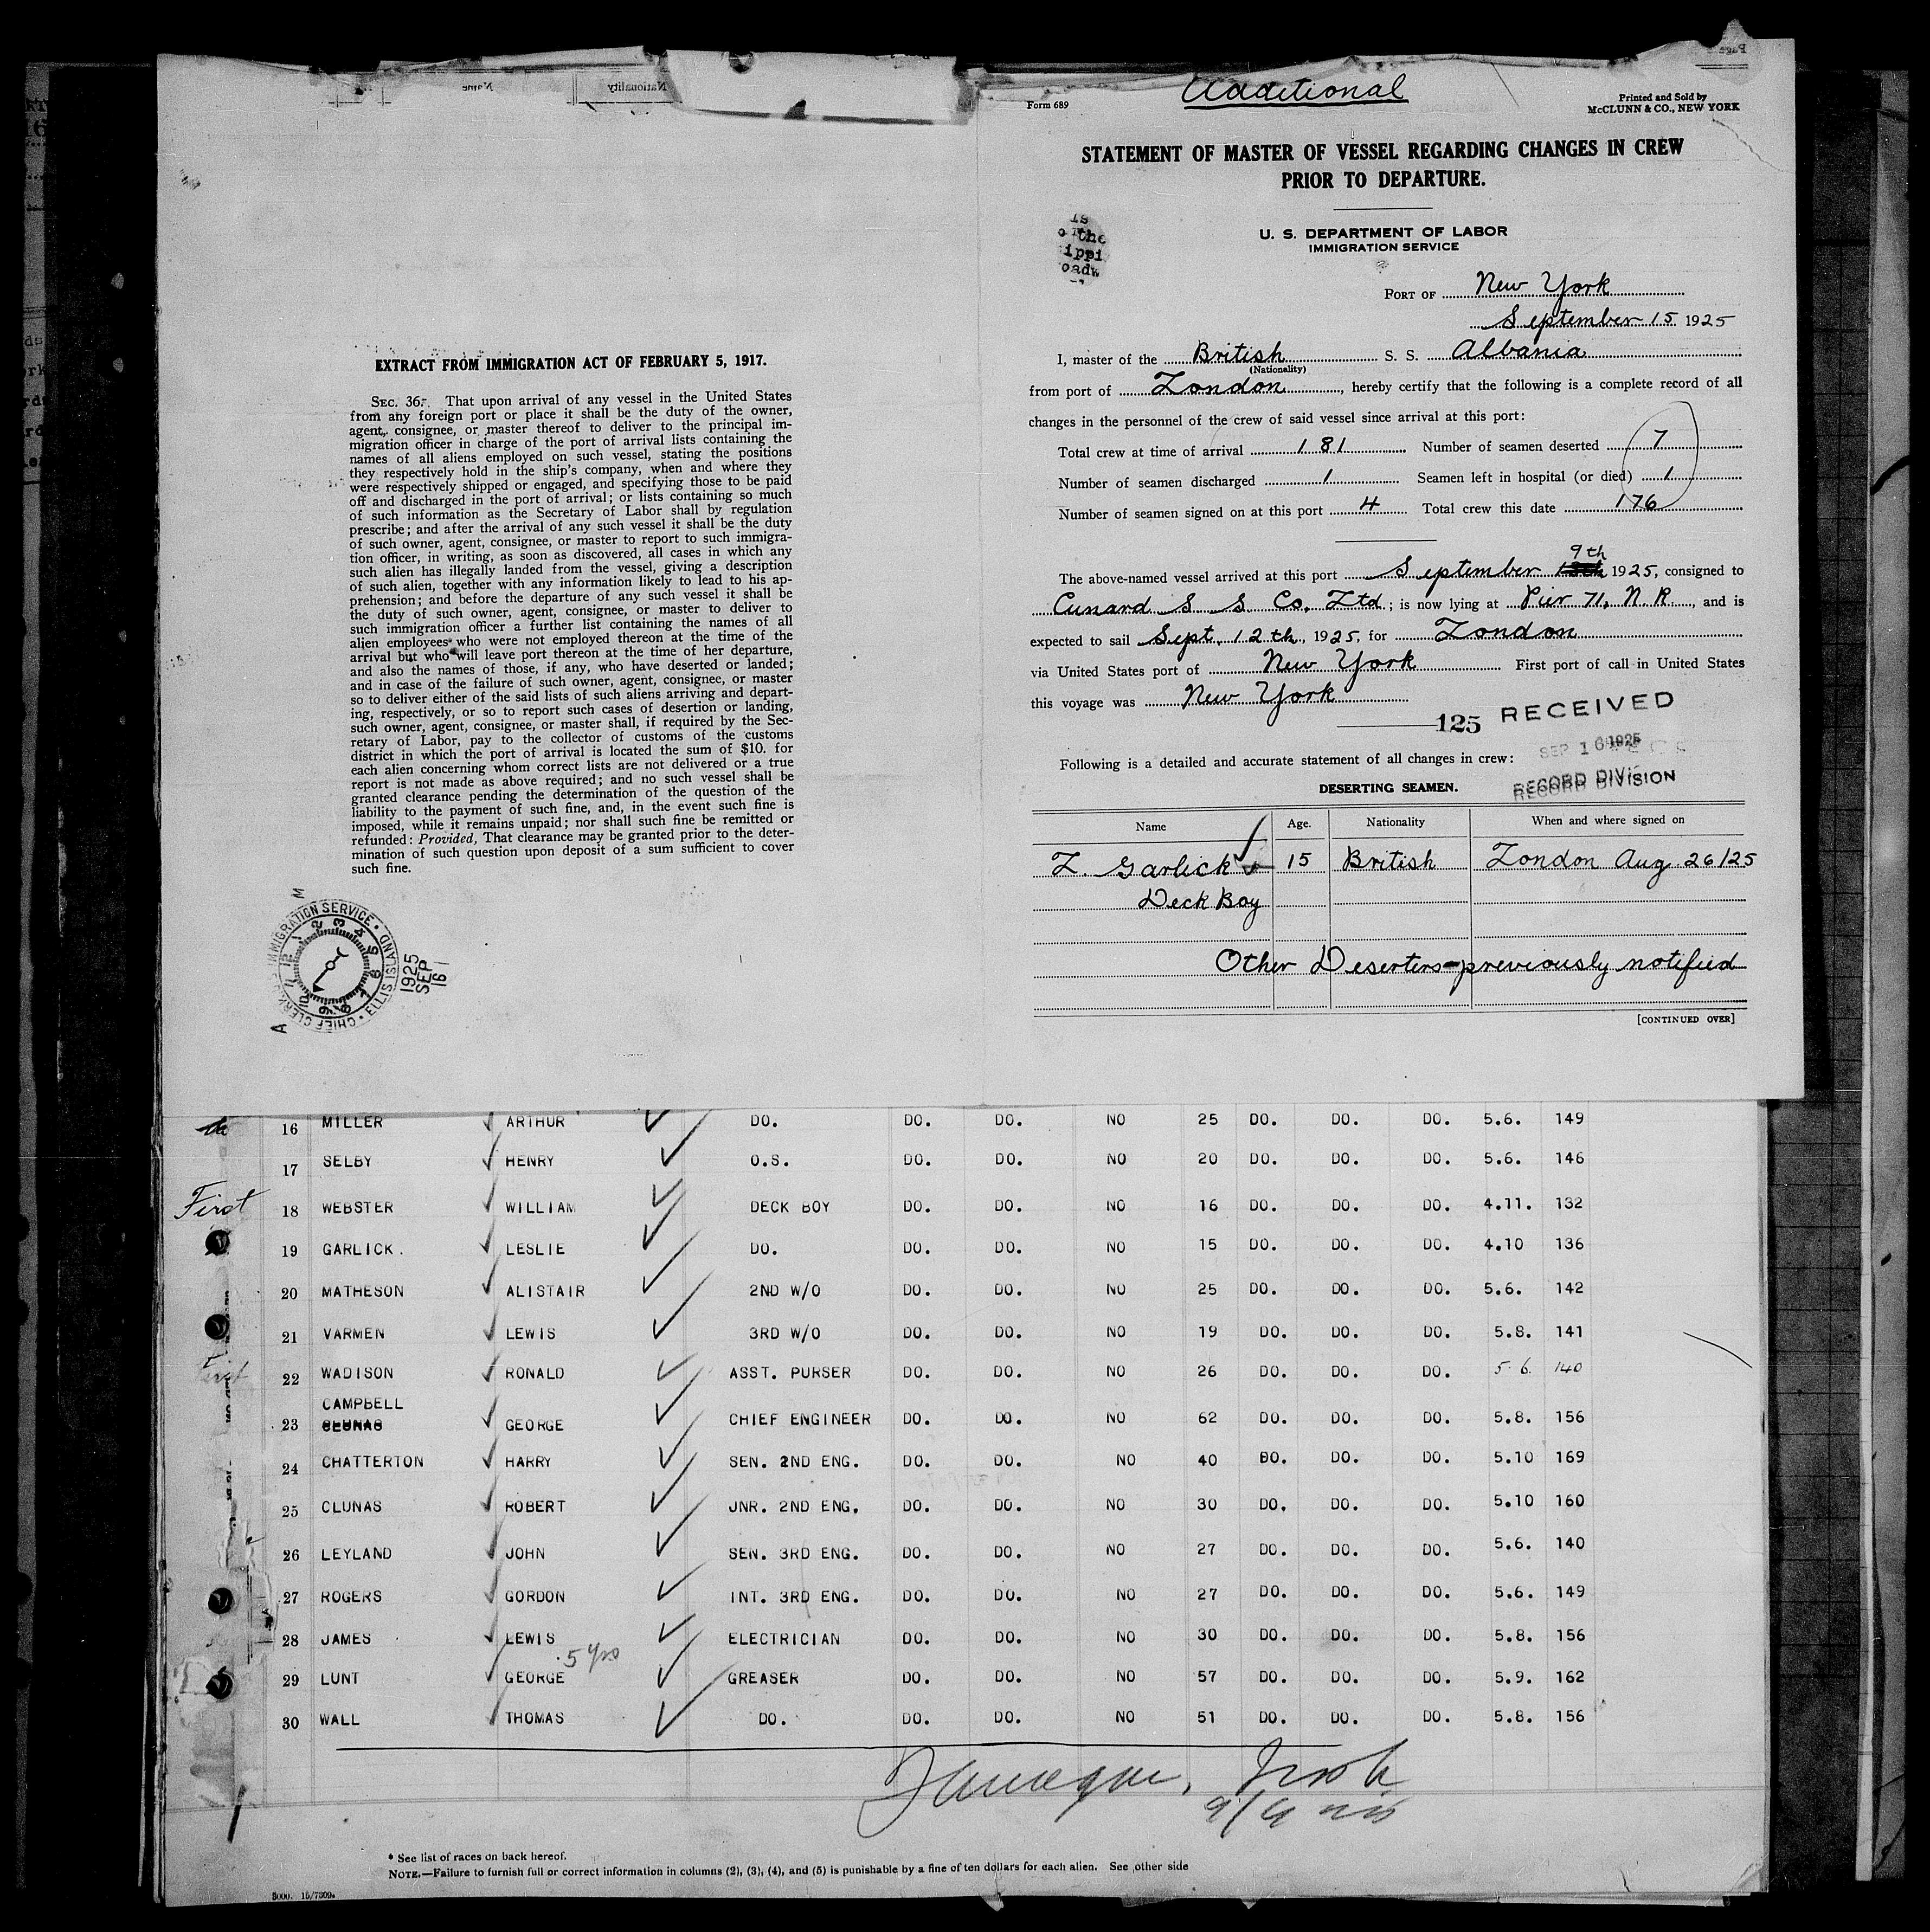 Additional
Form 689
Printed and Sold by
McCLUNN & CO., NEW YORK
STATEMENT OF MASTER OF VESSEL REGARDING CHANGES IN CREW
PRIOR TO DEPARTURE.
U. S. DEPARTMENT OF LABOR
IMMIGRATION SERVICE
PORT OF New York
September 15 1925
I, master of the British S. S. Albania
(Nationality)
from port of London, hereby certify that the following is a complete record of all
changes in the personnel of the crew of said vessel since arrival at this port:
Total crew at time of arrival 181 Number of seamen deserted 7
Number of seamen discharged 1 Seamen left in hospital (or died) 1
Number of seamen signed on at this port 4 Total crew this date 176
9th
The above-named vessel arrived at this port September 1925, consigned to
Cunard S S Co. Ltd; is now lying at Pier 71, N.R., and is
expected to sail Sept. 12th, 1925, for London
via United States port of New York First port of call in United States
this voyage was New York
125 RECEIVED
SEP 16 1925
RECORD DIVISION
Following is a detailed and accurate statement of all changes in crew:
DESERTING SEAMEN.
Name Age. Nationality When and where signed on
L. Garlick 15 British London Aug 26/25
Deck Boy
Other Deserters - previously notified
[CONTINUED OVER]
EXTRACT FROM IMMIGRATION ACT OF FEBRUARY 5, 1917.
SEC. 36. That upon arrival of any vessel in the United States
from any foreign port or place it shall be the duty of the owner,
agent, consignee, or master thereof to deliver to the principal im-
migration officer in charge of the port of arrival lists containing the
names of all aliens employed on such vessel, stating the positions
they respectively hold in the ship's company, when and where they
were respectively shipped or engaged, and specifying those to be paid
off and discharged in the port of arrival; or lists containing so much
of such information as the Secretary of Labor shall by regulation
prescribe; and after the arrival of any such vessel it shall be the duty
of such owner, agent, consignee, or master to report to such immigra-
tion officer, in writing, as soon as discovered, all cases in which any
such alien has illegally landed from the vessel, giving a description
of such alien, together with any information likely to lead to his ap-
prehension; and before the departure of any such vessel it shall be
the duty of such owner, agent, consignee, or master to deliver to
such immigration officer a further list containing the names of all
alien employees who were not employed thereon at the time of the
arrival but who will leave port thereon at the time of her departure,
and also the names of those, if any, who have deserted or landed;
and in case of the failure of such owner, agent, consignee, or master
so to deliver either of the said lists of such aliens arriving and depart-
ing, respectively, or so to report such cases of desertion or landing,
such owner, agent, consignee, or master shall, if required by the Sec-
retary of Labor, pay to the collector of customs of the customs
district in which the port of arrival is located the sum of $10. for
each alien concerning whom correct lists are not delivered or a true
report is not made as above required; and no such vessel shall be
granted clearance pending the determination of the question of the
liability to the payment of such fine, and, in the event such fine is
imposed, while it remains unpaid; nor shall such fine be remitted or
refunded: Provided, That clearance may be granted prior to the deter-
mination of such question upon deposit of a sum sufficient to cover
such fine.
IMMIGRATION SERVICE • ELLIS ISLAND • CHIEF CLERK
1925
SEP
16
16 MILLER ARTHUR DO. DO. DO. NO 25 DO. DO. DO. 5.6. 149
17 SELBY HENRY O.S. DO. DO. NO 20 DO. DO. DO. 5.6. 146
First 18 WEBSTER WILLIAM DECK BOY DO. DO. NO 16 DO. DO. DO. 4.11. 132
19 GARLICK. LESLIE DO. DO. DO. NO 15 DO. DO. DO. 4.10 136
20 MATHESON ALISTAIR 2ND W/O DO. DO. NO 25 DO. DO. DO. 5.6. 142
21 VARMEN LEWIS 3RD W/O DO. DO. NO 19 DO. DO. DO. 5.8. 141
First 22 WADISON RONALD ASST. PURSER DO. DO. NO 26 DO. DO. DO. 5.6. 140
CAMPBELL
23 CLUNAS GEORGE CHIEF ENGINEER DO. DO. NO 62 DO. DO. DO. 5.8. 156
24 CHATTERTON HARRY SEN. 2ND ENG. DO. DO. NO 40 BO. DO. DO. 5.10 169
25 CLUNAS ROBERT JNR. 2ND ENG. DO. DO. NO 30 DO. DO. DO. 5.10 160
26 LEYLAND JOHN SEN. 3RD ENG. DO. DO. NO 27 DO. DO. DO. 5.6. 140
27 ROGERS GORDON INT. 3RD ENG. DO. DO. NO 27 DO. DO. DO. 5.6. 149
28 JAMES LEWIS ELECTRICIAN DO. DO. NO 30 DO. DO. DO. 5.8. 156
5 yrs
29 LUNT GEORGE GREASER DO. DO. NO 57 DO. DO. DO. 5.9. 162
30 WALL THOMAS DO. DO. DO. NO 51 DO. DO. DO. 5.8. 156
* See list of races on back hereof.
NOTE.—Failure to furnish full or correct information in columns (2), (3), (4), and (5) is punishable by a fine of ten dollars for each alien. See other side